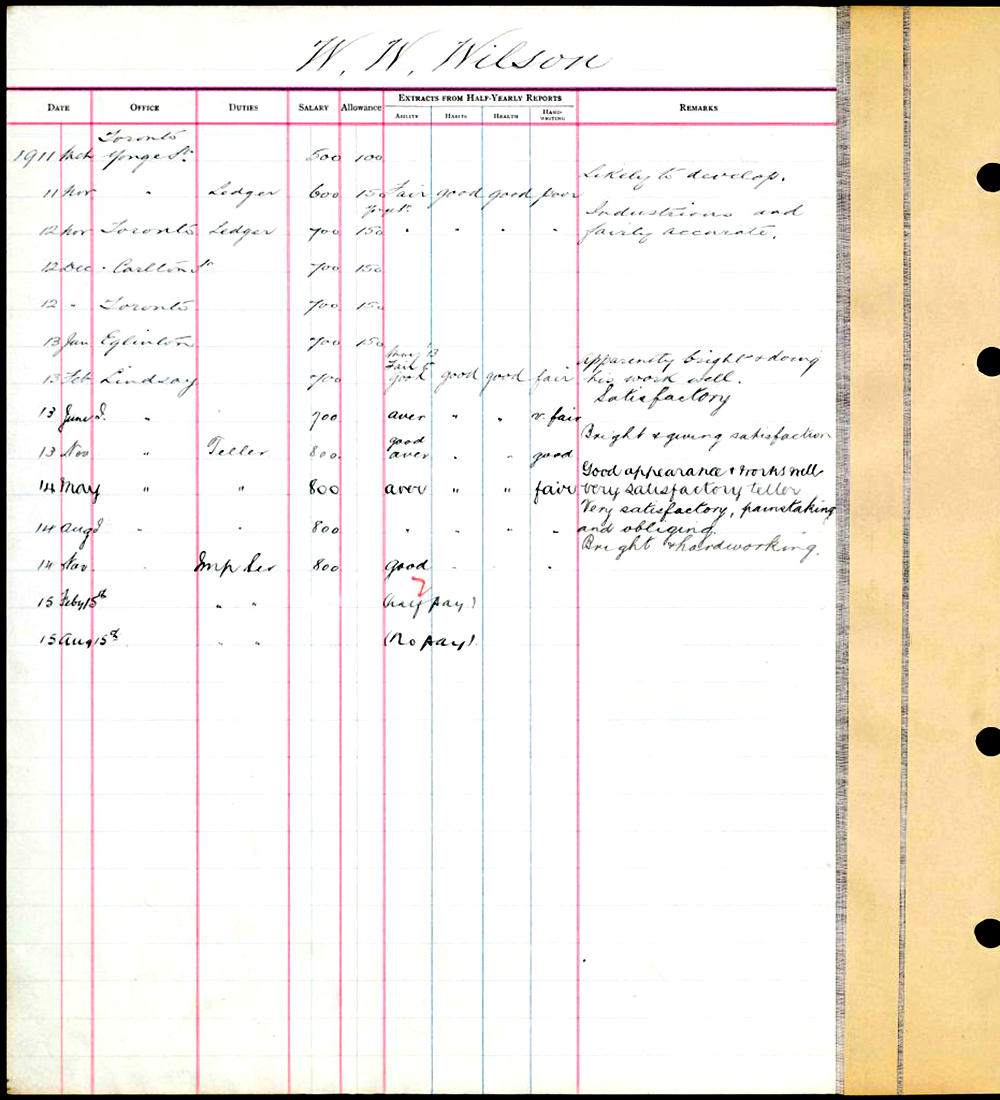 W. W. Wilson
DATE OFFICE DUTIES SALARY Allowance EXTRACTS FROM HALF-YEARLY REPORTS REMARKS
ABILITY HABITS HEALTH HAND-WRITING
Toronto
1911 Mch Yonge St. 500 100
Likely to develop.
11 Nov " Ledger 600 150 Fair good good poor
Industrious and
12 Nov Toronto Ledger 700 150 " " " " fairly accurate.
12 Dec " Carlton St 700 150
12 " Toronto 700 150
13 Jan Eglinton 700 150
May '13
Fair to Apparently bright & doing
13 Feb Lindsay 700 good good good fair his work well.
Satisfactory
13 June " " 700 aver " " v. fair
good Bright & giving satisfaction
13 Nov " Teller 800 aver " " good
Good appearance & works well
14 May " " 800 aver " " fair Very satisfactory teller
Very satisfactory, painstaking
14 Aug " " 800 " " " " and obliging
Bright & hardworking.
14 Nov. " Imp Ser 800 good " " "
15 Feby 15th " " (half pay)
15 Aug 15th " " (No pay)